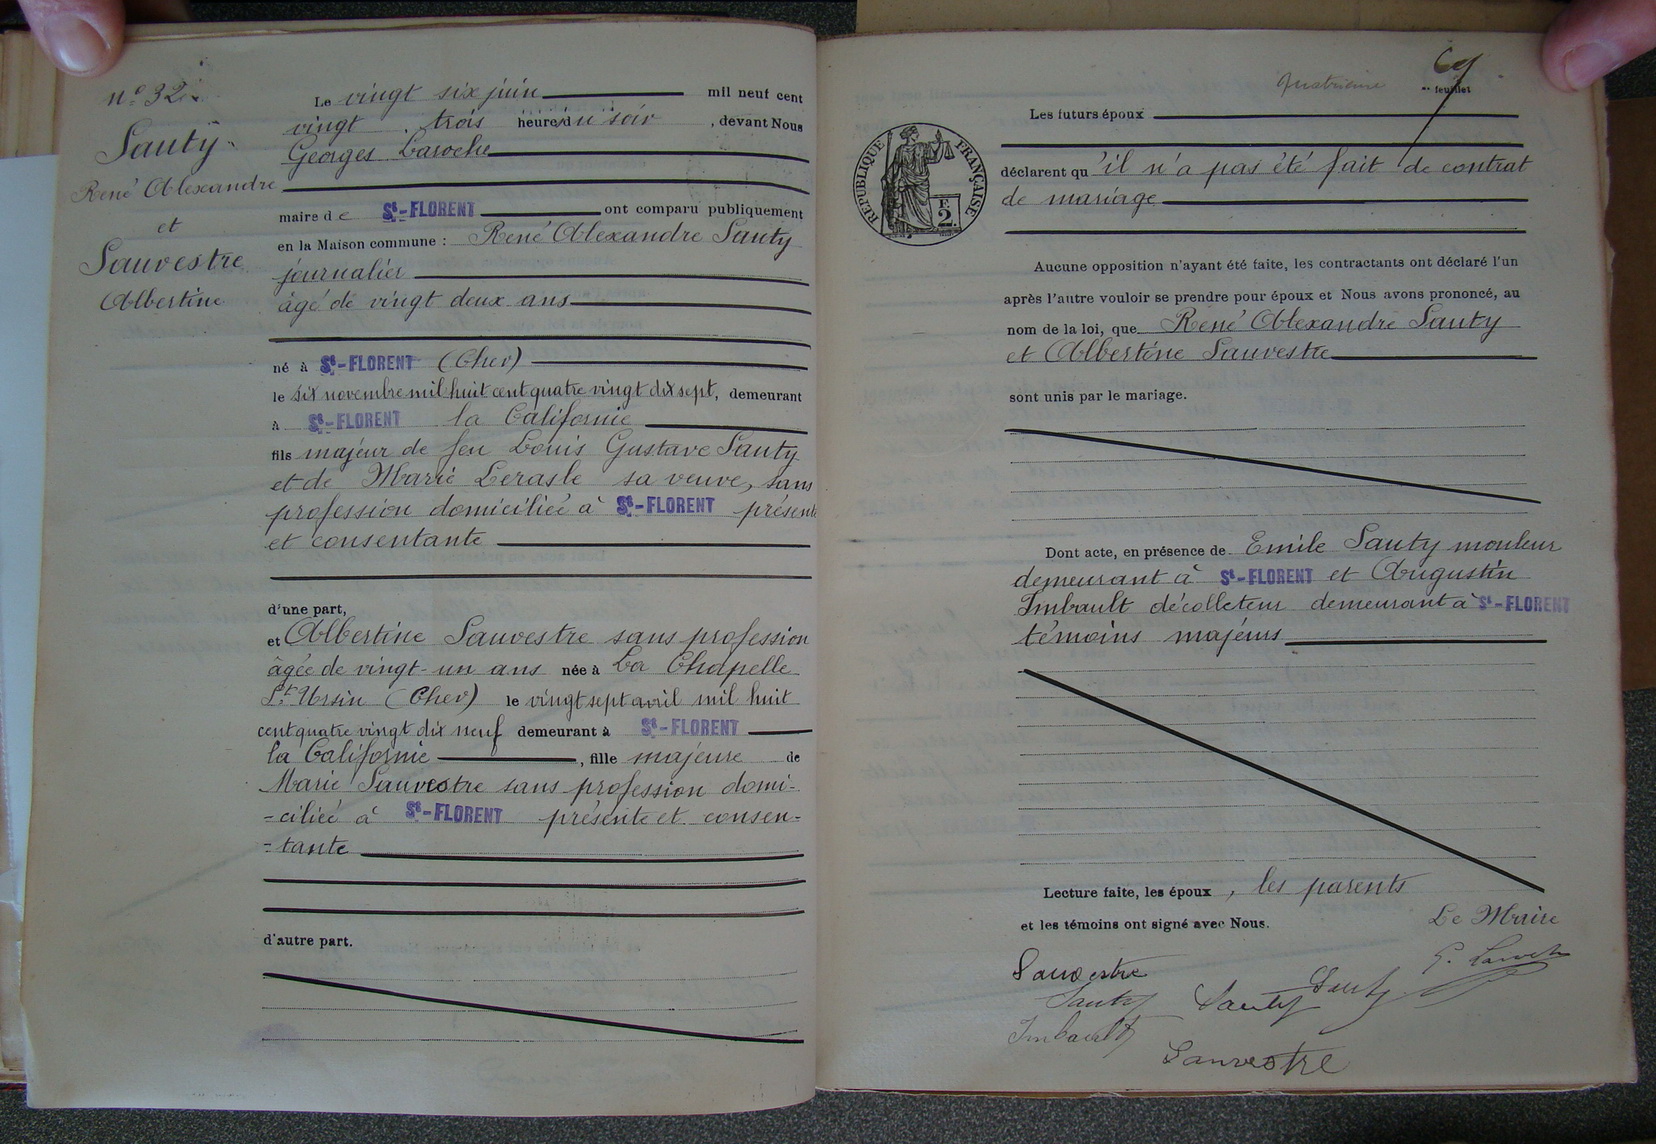 nº 32
Sauty
René Alexandre
et
Sauvestre
Albertine
Le vingt six juin mil neuf cent
vingt, trois heure du soir, devant Nous
Georges Laroche
maire de St-FLORENT ont comparu publiquement
en la Maison commune : René Alexandre Sauty
journalier
âgé de vingt deux ans
né à St-FLORENT (Cher)
le six novembre mil huit cent quatre vingt dix sept, demeurant
à St-FLORENT la Californie
fils majeur de feu Louis Gustave Sauty
et de Marie Lerasle sa veuve, sans
profession domiciliée à St-FLORENT présente
et consentante
d'une part,
et Albertine Sauvestre sans profession
âgée de vingt-un ans née à La Chapelle
St Ursin (Cher) le vingt sept avril mil huit
cent quatre vingt dix neuf demeurant à St-FLORENT
la Californie, fille majeure de
Marie Sauvestre sans profession domi-
-ciliée à St-FLORENT présente et consen-
-tante
d'autre part.
feuillet
RÉPUBLIQUE FRANÇAISE
F.
2.
Les futurs époux
déclarent qu'il n'a pas été fait de contrat
de mariage
Aucune opposition n'ayant été faite, les contractants ont déclaré l'un
après l'autre vouloir se prendre pour époux et Nous avons prononcé, au
nom de la loi, que René Alexandre Sauty
et Albertine Sauvestre
sont unis par le mariage.
Dont acte, en présence de Emile Sauty mouleur
demeurant à St-FLORENT et Augustin
Imbault décolleteur demeurant à St-FLORENT
témoins majeurs
Lecture faite, les époux, les parents
et les témoins ont signé avec Nous.
Le Maire
G. Laroche
Sauvestre
Sauty
Sauty
Sauty
Imbault
Sauvestre